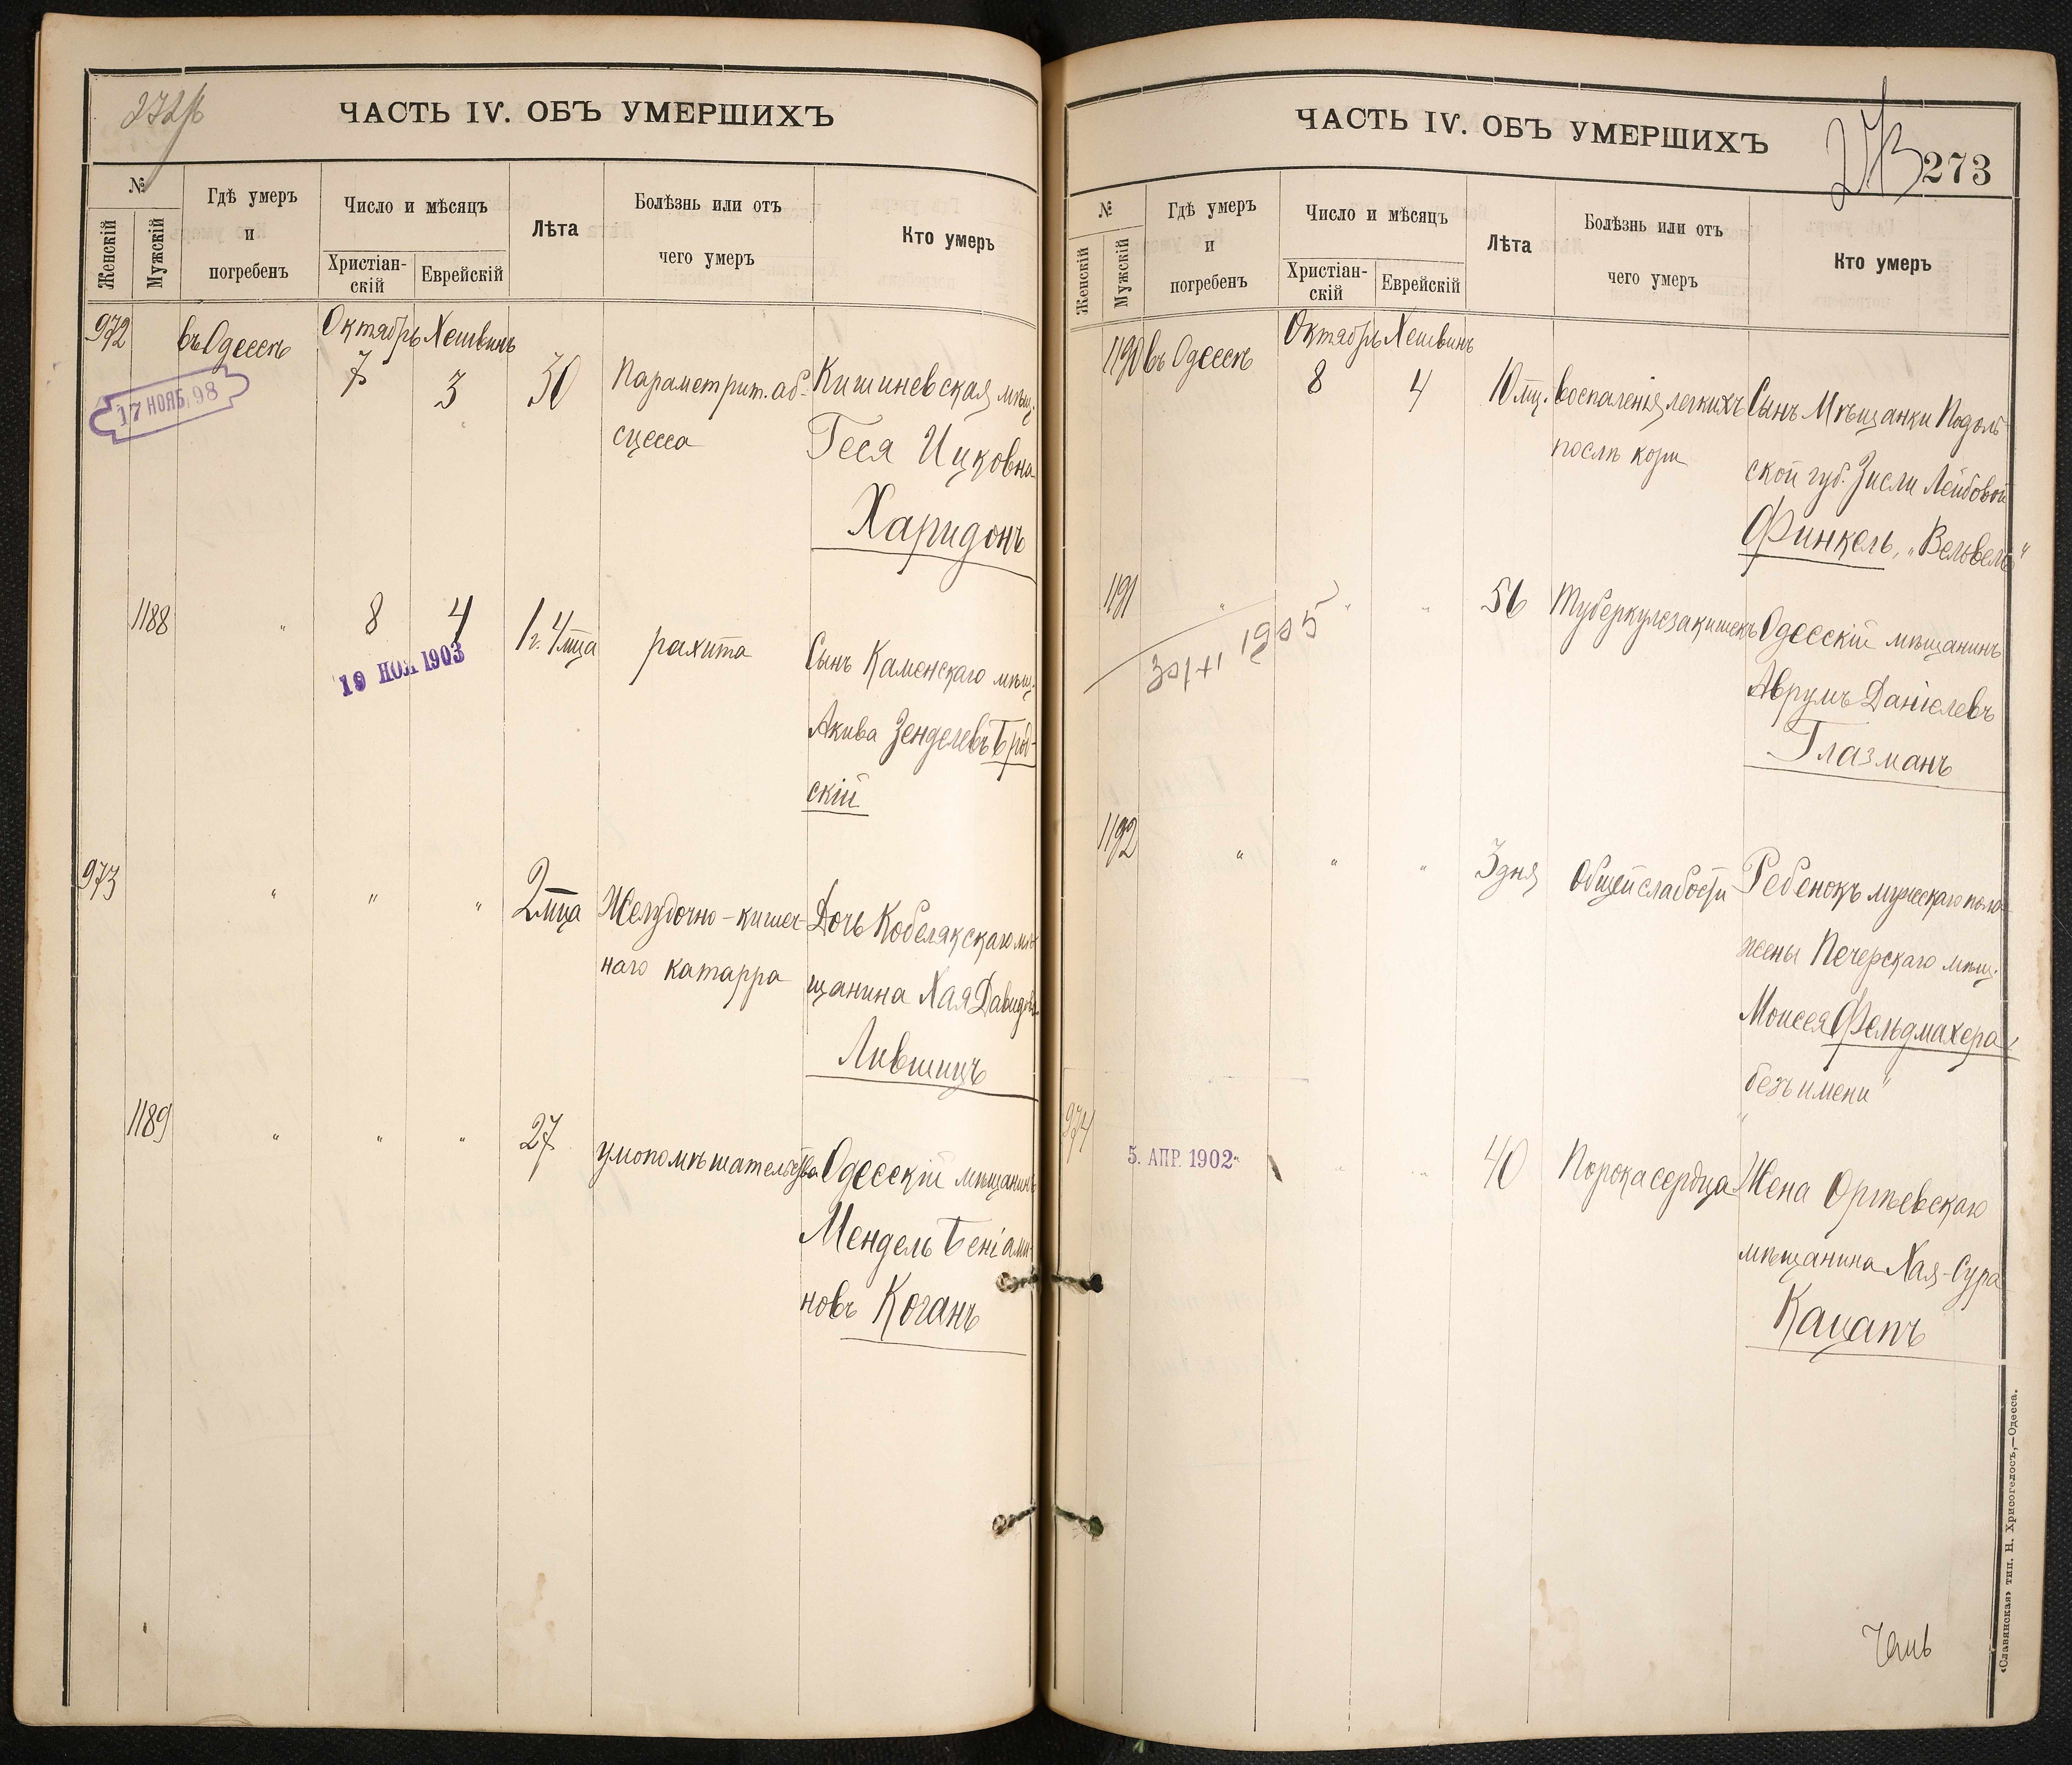 ЧАСТЬ IV. ОБЪ УМЕРШИХЪ
№
Женскій
Мужскій
Гдѣ умеръ
и
погребенъ
Число и мѣсяцъ
Христіан-
скій
Еврейскій
Лѣта
Болѣзнь или отъ
чего умеръ
Кто умеръ
972 въ Одессѣ Октябрь Хешвинъ
7 3 30 Параметрит. аб- Кишиневская мѣщ.
17 НОЯБ. 98
сцесса Геся Ицковна
Харидонъ
1188 " 8 4 1 г. 4 мца рахита Сынъ Каменскаго мѣщ.
19 НОЯ 1903
Акива Зенделевъ Брод-
скій
973 " " " 2 мца Желудочно-кишеч- Дочь Кобелякскаго мѣ-
наго катарра щанина Хая Давидова
Лившицъ
1189 " " " 27 умопомѣшательства Одесскій мѣщанинъ
Мендель Беніами-
новъ Коганъ
ЧАСТЬ IV. ОБЪ УМЕРШИХЪ
273 273
№
Женскій
Мужскій
Гдѣ умеръ
и
погребенъ
Число и мѣсяцъ
Христіан-
скій
Еврейскій
Лѣта
Болѣзнь или отъ
чего умеръ
Кто умеръ
1190 въ Одессѣ Октябрь Хешвинъ
8 4 10 мц. воспаленія легкихъ Сынъ Мѣщанки Подоль-
послѣ кори ской губ. Зисли Лейбовой
Финкель, „Вельвель"
1191 " " " 56 Туберкулеза кишекъ Одесскій мѣщанинъ
1905
Аврумъ Даніелевъ
Глазманъ
1192 " " " 3 дня Общей слабости Ребенокъ мужскаго пола
жены Печерскаго мѣщ.
Моисея Фельдмахера,
„безъ имени"
974 " " " 40 Порока сердца Жена Оргѣевскаго
5. АПР. 1902
мѣщанина Хая-Сура
Кацапъ
«Славянская» тип. Н. Хрисогелосъ,—Одесса.